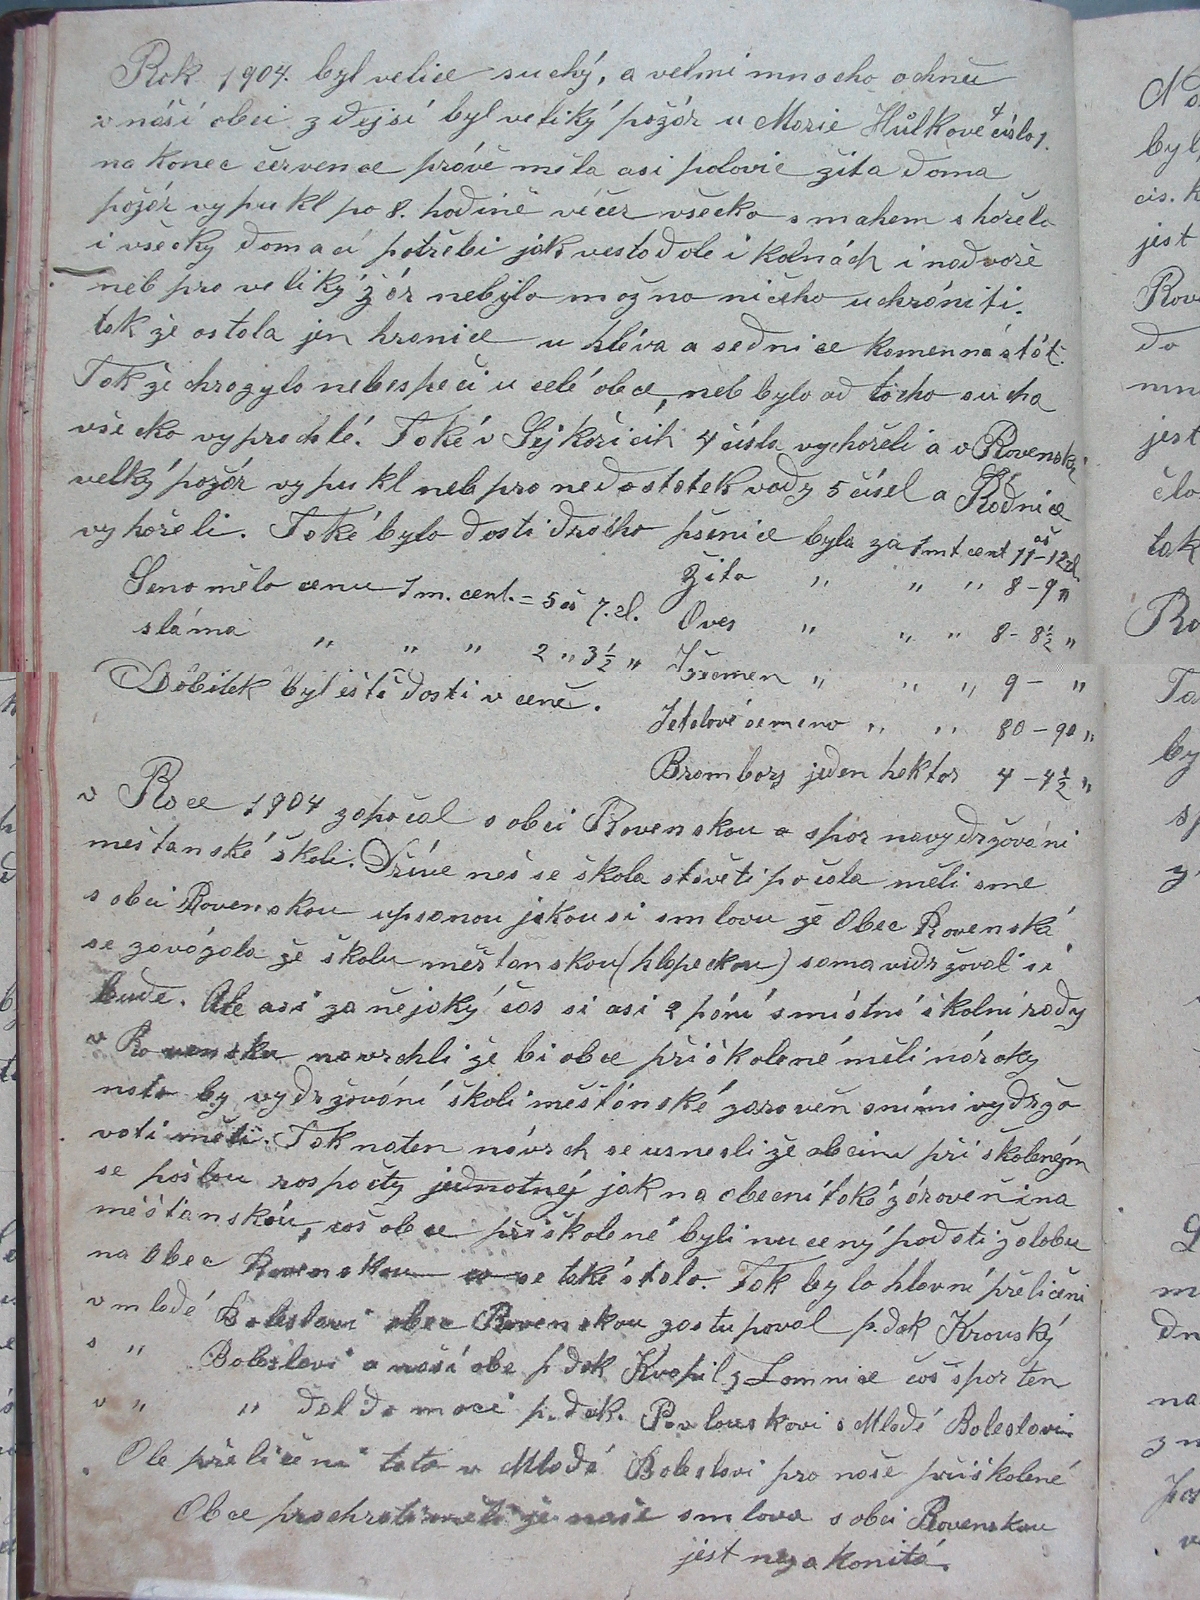 Rok 1904. byl velice suchý, a velmi mnocho ochnů
v náší obci zdejsí byl veliký požár u Marie Hůlkové číslo 1.
na konec července právě měla asi polovic žita doma
požár vypukl po 8. hodině večer všecko smahem shořelo
i všecky domací potřebi jak vestodole i kolnách i nadvoře
neb pro veliký žár nebylo možno ničeho uchrániti.
tak že ostala jen hranice u hléva a sednice kamenná stát.
Tak že chrozylo nebespečí u celé obce, neb bylo od tocho sucha
všecko vyprahlé. Také v Sejkořicih 4 čísla vychořeli a v Rovensku
velký požár vypukl neb pro nedostatek vody 5 čísel a Radnice
vyhořeli. Také bylo dosti draího pšenice byla za 1 mt cent 11 až 12 zl.
Žita " " " 8-9 "
Seno mělo cenu 1 m. cent. = 5 až 7. zl.
Oves " " " 8- 8½ "
sláma " " " 2 " 3½ "
Ječmen " " " 9 - "
Dobitek byl eště dosti v ceně.
Jetelové semeno " " 80 - 90 "
Brambory jeden hektor 4 - 4½ "
v Roce 1904 započal s obcí Rovenskou a spor navydržováni
mešťanské školi. Dříve než se škola stavěti počala měli sme
s obcí Rovenskou upsanou jakousi smlovu že Obec Rovenská
se zavázala že školu měšťanskou (hlapeckou) sama vidržovat si
bude. Ale asi za nějaký čas si asi 2 páni s místní školní rady
v Rovensku navrchli že bi obce přiškolené měli nároky
nato by vydržování školi měšťánské zaroveň snimi vydržo
vati měli. Tak naten návrch se usnesli že obcím přiškoleným
se pošlou rospočty jednotnej jak na obecní také zároveň i na
měšťanskou, což obce přiškolené byli nuceny podati žalobu
na Obec Rovenskou což se také stalo. Tak bylo hlavní přeličeni
v mladé Boleslavi obec Rovenskou zastupoval p. dok Krouský
s " Boleslavi a naší obc p. dok Kvapil z Lomnice což spor ten
v " " dal do moci p. dok. Pavlouskovi s Mladé Boleslavi
Ale přeličeni toto v Mladé Boleslavi pro naše přiškolené
Obce prochráli že naše smlova s obcí Rovenskou
jest nezakonitá.